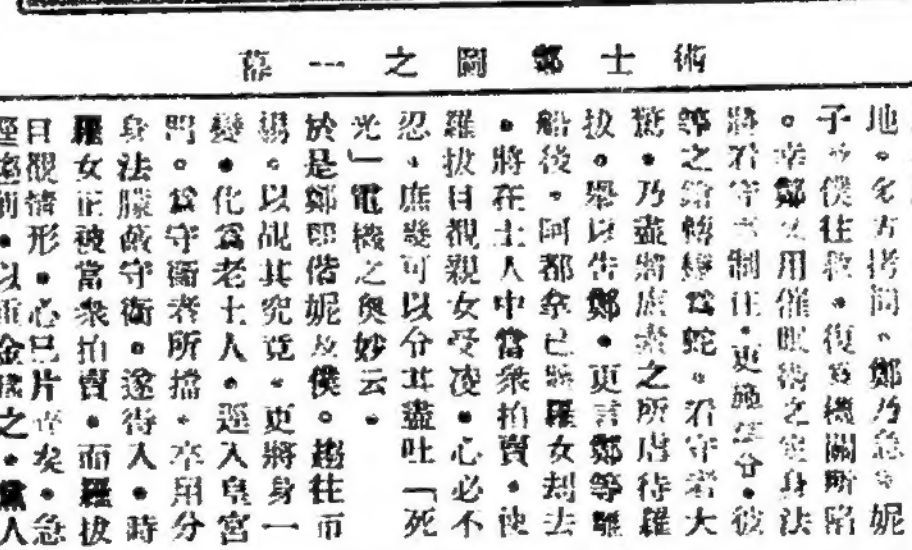 術士鄭圖之一幕
地。多方拷問。鄭乃急。妮
子及僕往救。復爲機關所陷
。幸鄭又用催眠術之定身法
將看守者制住。更施。彼
等之轉變爲蛇。看守者大
驚。乃盡將之所虐待羅
拔。舉以告鄭。更言鄭等離
船後。阿都拿已將羅女刦去
。將在土人中當衆拍賣。使
羅拔目覩親女受凌。心必不
忍。庶幾可以分其盡吐「死
光」電機之奧妙云。
於是鄭即偕妮及僕。趨往市
場。以覘其究竟。更將身一
變。化爲老土人。逕入皇宮
門。爲守衛者所擋。卒用分
身法朦蔽守衛。遂得入。時
羅女正被當衆拍賣。而羅拔
目覩情形。心已片碎矣。急
前。以重金之。黨人